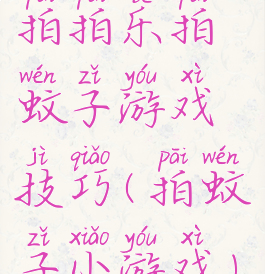 拍拍乐拍
wén zǐ yóu xì
蚊子游戏
jì qiǎo pāi wén
技巧(拍蚊
zǐ xiǎo yóu xì
子小游戏)